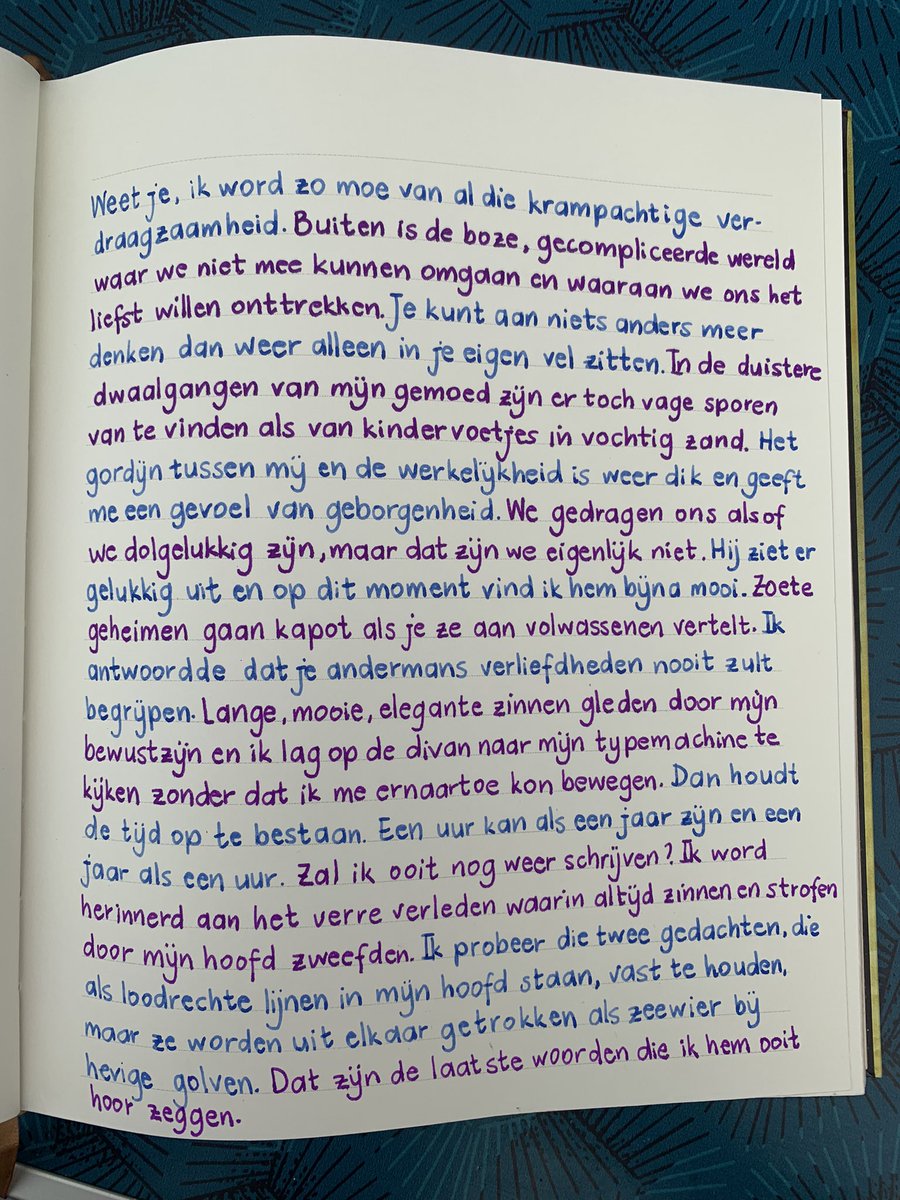 Weet je, ik word zo moe van al die krampachtige ver-
draagzaamheid. Buiten is de boze, gecompliceerde wereld
waar we niet mee kunnen omgaan en waaraan we ons het
liefst willen onttrekken. Je kunt aan niets anders meer
denken dan weer alleen in je eigen vel zitten. In de duistere
dwaalgangen van mijn gemoed zijn er toch vage sporen
van te vinden als van kindervoetjes in vochtig zand. Het
gordijn tussen mij en de werkelijkheid is weer dik en geeft
me een gevoel van geborgenheid. We gedragen ons alsof
we dolgelukkig zijn, maar dat zijn we eigenlijk niet. Hij ziet er
gelukkig uit en op dit moment vind ik hem bijna mooi. Zoete
geheimen gaan kapot als je ze aan volwassenen vertelt. Ik
antwoordde dat je andermans verliefdheden nooit zult
begrijpen. Lange, mooie, elegante zinnen gleden door mijn
bewustzijn en ik lag op de divan naar mijn typemachine te
kijken zonder dat ik me ernaartoe kon bewegen. Dan houdt
de tijd op te bestaan. Een uur kan als een jaar zijn en een
jaar als een uur. Zal ik ooit nog weer schrijven? Ik word
herinnerd aan het verre verleden waarin altijd zinnen en strofen
door mijn hoofd zweefden. Ik probeer die twee gedachten, die
als loodrechte lijnen in mijn hoofd staan, vast te houden,
maar ze worden uit elkaar getrokken als zeewier bij
hevige golven. Dat zijn de laatste woorden die ik hem ooit
hoor zeggen.